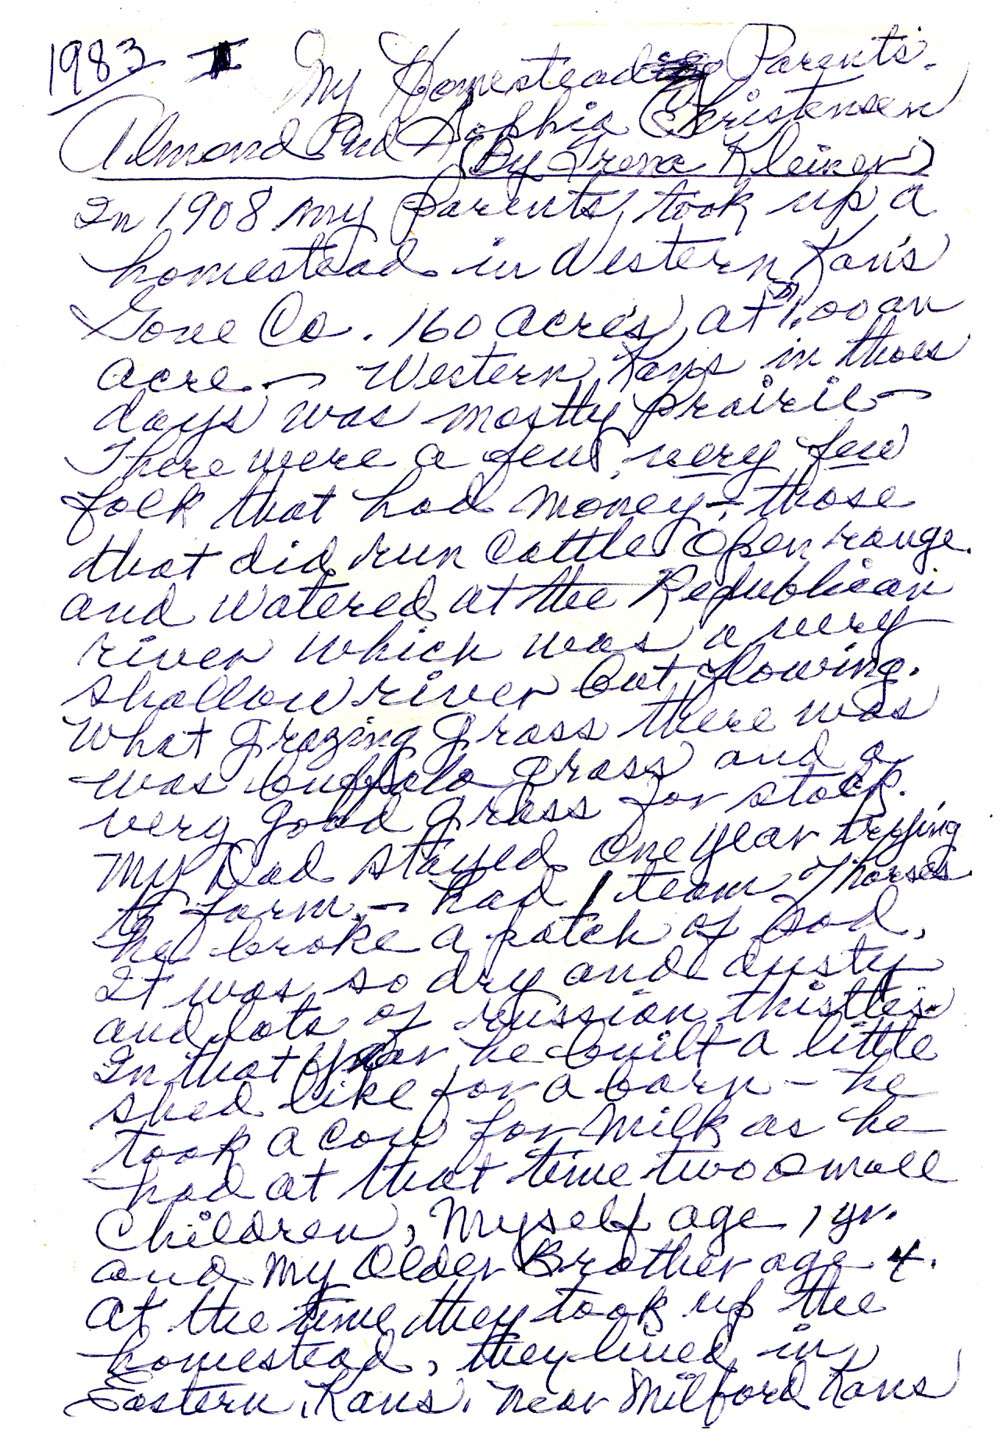 1983 I My Homestead Parents.
Almond and Sophia Christensen
(By Irena Kleiner)
In 1908 my parents, took up a
homestead in Western Kans
Gove Co. 160 acres, at $1.00 an
acre - Western Kans in thoes
days was mostly prairie -
There were a few, very few
folk that had money - those
that did run cattle open range.
and watered at the Republican
river which was a very
shallow river but flowing.
What grazing grass there was
was buffalo grass and a
very good grass for stock.
My Dad stayed one year trying
to farm, - had 1 team of horses
he broke a patch of sod,
It was so dry and dusty
and lots of russian thistles.
In that year he built a little
shed like for a barn - he
took a cow for milk as he
had at that time two small
children, myself age 1 yr.
and my older Brother age 4.
At the time they took up the
homestead, they lived in
Eastern, Kans. near Milford Kans